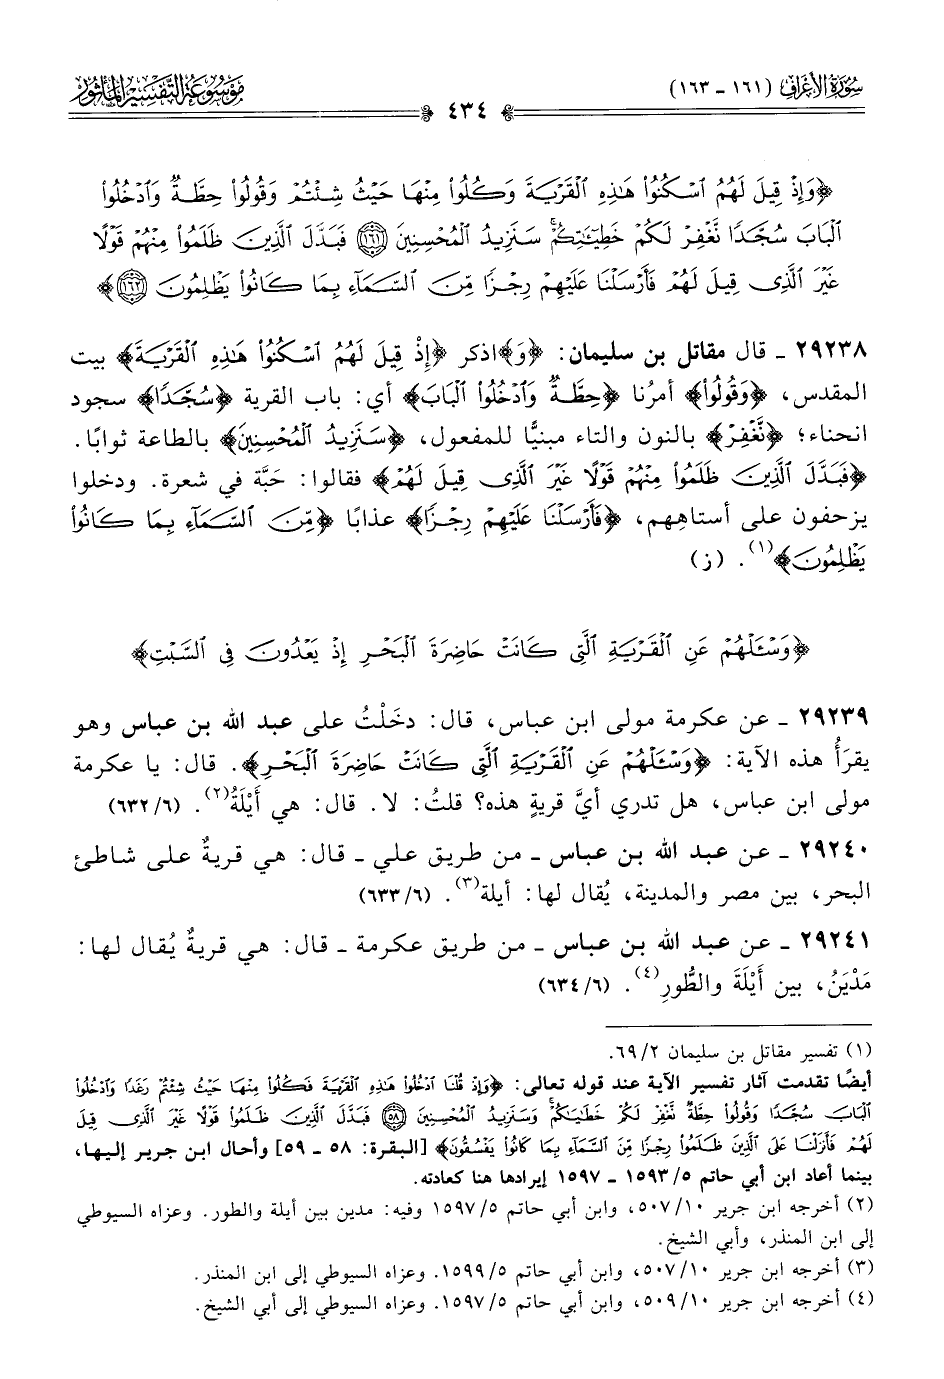 سُورَةُ الأَعْرَافِ (١٦١ - ١٦٣)
مَوْسُوعَة التَّفْسِير المَأْثُور
٤٣٤
﴿وَإِذْ قِيلَ لَهُمُ ٱسْكُنُوا۟ هَٰذِهِ ٱلْقَرْيَةَ وَكُلُوا۟ مِنْهَا حَيْثُ شِئْتُمْ وَقُولُوا۟ حِطَّةٌ وَٱدْخُلُوا۟
ٱلْبَابَ سُجَّدًا نَّغْفِرْ لَكُمْ خَطِيٓـَٰٔتِكُمْ ۚ سَنَزِيدُ ٱلْمُحْسِنِينَ ١٦١ فَبَدَّلَ ٱلَّذِينَ ظَلَمُوا۟ مِنْهُمْ قَوْلًا
غَيْرَ ٱلَّذِى قِيلَ لَهُمْ فَأَرْسَلْنَا عَلَيْهِمْ رِجْزًا مِّنَ ٱلسَّمَآءِ بِمَا كَانُوا۟ يَظْلِمُونَ ١٦٢﴾
٢٩٢٣٨ - قال مقاتل بن سليمان: ﴿وَ﴾اذكر ﴿إِذْ قِيلَ لَهُمُ ٱسْكُنُوا۟ هَٰذِهِ ٱلْقَرْيَةَ﴾ بيت
المقدس، ﴿وَقُولُوا۟﴾ أمرُنا ﴿حِطَّةٌ وَٱدْخُلُوا۟ ٱلْبَابَ﴾ أي: باب القرية ﴿سُجَّدًا﴾ سجود
انحناء؛ ﴿نَّغْفِرْ﴾ بالنون والتاء مبنيًّا للمفعول، ﴿سَنَزِيدُ ٱلْمُحْسِنِينَ﴾ بالطاعة ثوابًا.
﴿فَبَدَّلَ ٱلَّذِينَ ظَلَمُوا۟ مِنْهُمْ قَوْلًا غَيْرَ ٱلَّذِى قِيلَ لَهُمْ﴾ فقالوا: حَبَّة في شعرة. ودخلوا
يزحفون على أستاههم، ﴿فَأَرْسَلْنَا عَلَيْهِمْ رِجْزًا﴾ عذابًا ﴿مِّنَ ٱلسَّمَآءِ بِمَا كَانُوا۟
يَظْلِمُونَ﴾(١). (ز)
﴿وَسْـَٔلْهُمْ عَنِ ٱلْقَرْيَةِ ٱلَّتِى كَانَتْ حَاضِرَةَ ٱلْبَحْرِ إِذْ يَعْدُونَ فِى ٱلسَّبْتِ﴾
٢٩٢٣٩ - عن عكرمة مولى ابن عباس، قال: دخَلْتُ على عبد الله بن عباس وهو
يقرَأُ هذه الآية: ﴿وَسْـَٔلْهُمْ عَنِ ٱلْقَرْيَةِ ٱلَّتِى كَانَتْ حَاضِرَةَ ٱلْبَحْرِ﴾. قال: يا عكرمة
مولى ابن عباس، هل تدري أيَّ قريةٍ هذه؟ قلتُ: لا. قال: هي أَيْلَةُ(٢). (٦/ ٦٣٢)
٢٩٢٤٠ - عن عبد الله بن عباس - من طريق علي - قال: هي قريةٌ على شاطئ
البحر، بين مصر والمدينة، يُقال لها: أيلة(٣). (٦/ ٦٣٣)
٢٩٢٤١ - عن عبد الله بن عباس - من طريق عكرمة - قال: هي قريةٌ يُقال لها:
مَدْيَنُ، بين أَيْلَةَ والطُّورِ(٤). (٦/ ٦٣٤)
(١) تفسير مقاتل بن سليمان ٢/ ٦٩.
أيضًا تقدمت آثار تفسير الآية عند قوله تعالى: ﴿وَإِذْ قُلْنَا ٱدْخُلُوا۟ هَٰذِهِ ٱلْقَرْيَةَ فَكُلُوا۟ مِنْهَا حَيْثُ شِئْتُمْ رَغَدًا وَٱدْخُلُوا۟
ٱلْبَابَ سُجَّدًا وَقُولُوا۟ حِطَّةٌ نَّغْفِرْ لَكُمْ خَطَٰيَٰكُمْ ۚ وَسَنَزِيدُ ٱلْمُحْسِنِينَ ٥٨ فَبَدَّلَ ٱلَّذِينَ ظَلَمُوا۟ قَوْلًا غَيْرَ ٱلَّذِى قِيلَ
لَهُمْ فَأَنزَلْنَا عَلَى ٱلَّذِينَ ظَلَمُوا۟ رِجْزًا مِّنَ ٱلسَّمَآءِ بِمَا كَانُوا۟ يَفْسُقُونَ﴾ [البقرة: ٥٨ - ٥٩] وأحال ابن جرير إليها،
بينما أعاد ابن أبي حاتم ٥/ ١٥٩٣ - ١٥٩٧ إيرادها هنا كعادته.
(٢) أخرجه ابن جرير ١٠/ ٥٠٧، وابن أبي حاتم ٥/ ١٥٩٧ وفيه: مدين بين أيلة والطور. وعزاه السيوطي
إلى ابن المنذر، وأبي الشيخ.
(٣) أخرجه ابن جرير ١٠/ ٥٠٧، وابن أبي حاتم ٥/ ١٥٩٩. وعزاه السيوطي إلى ابن المنذر.
(٤) أخرجه ابن جرير ١٠/ ٥٠٩، وابن أبي حاتم ٥/ ١٥٩٧. وعزاه السيوطي إلى أبي الشيخ.